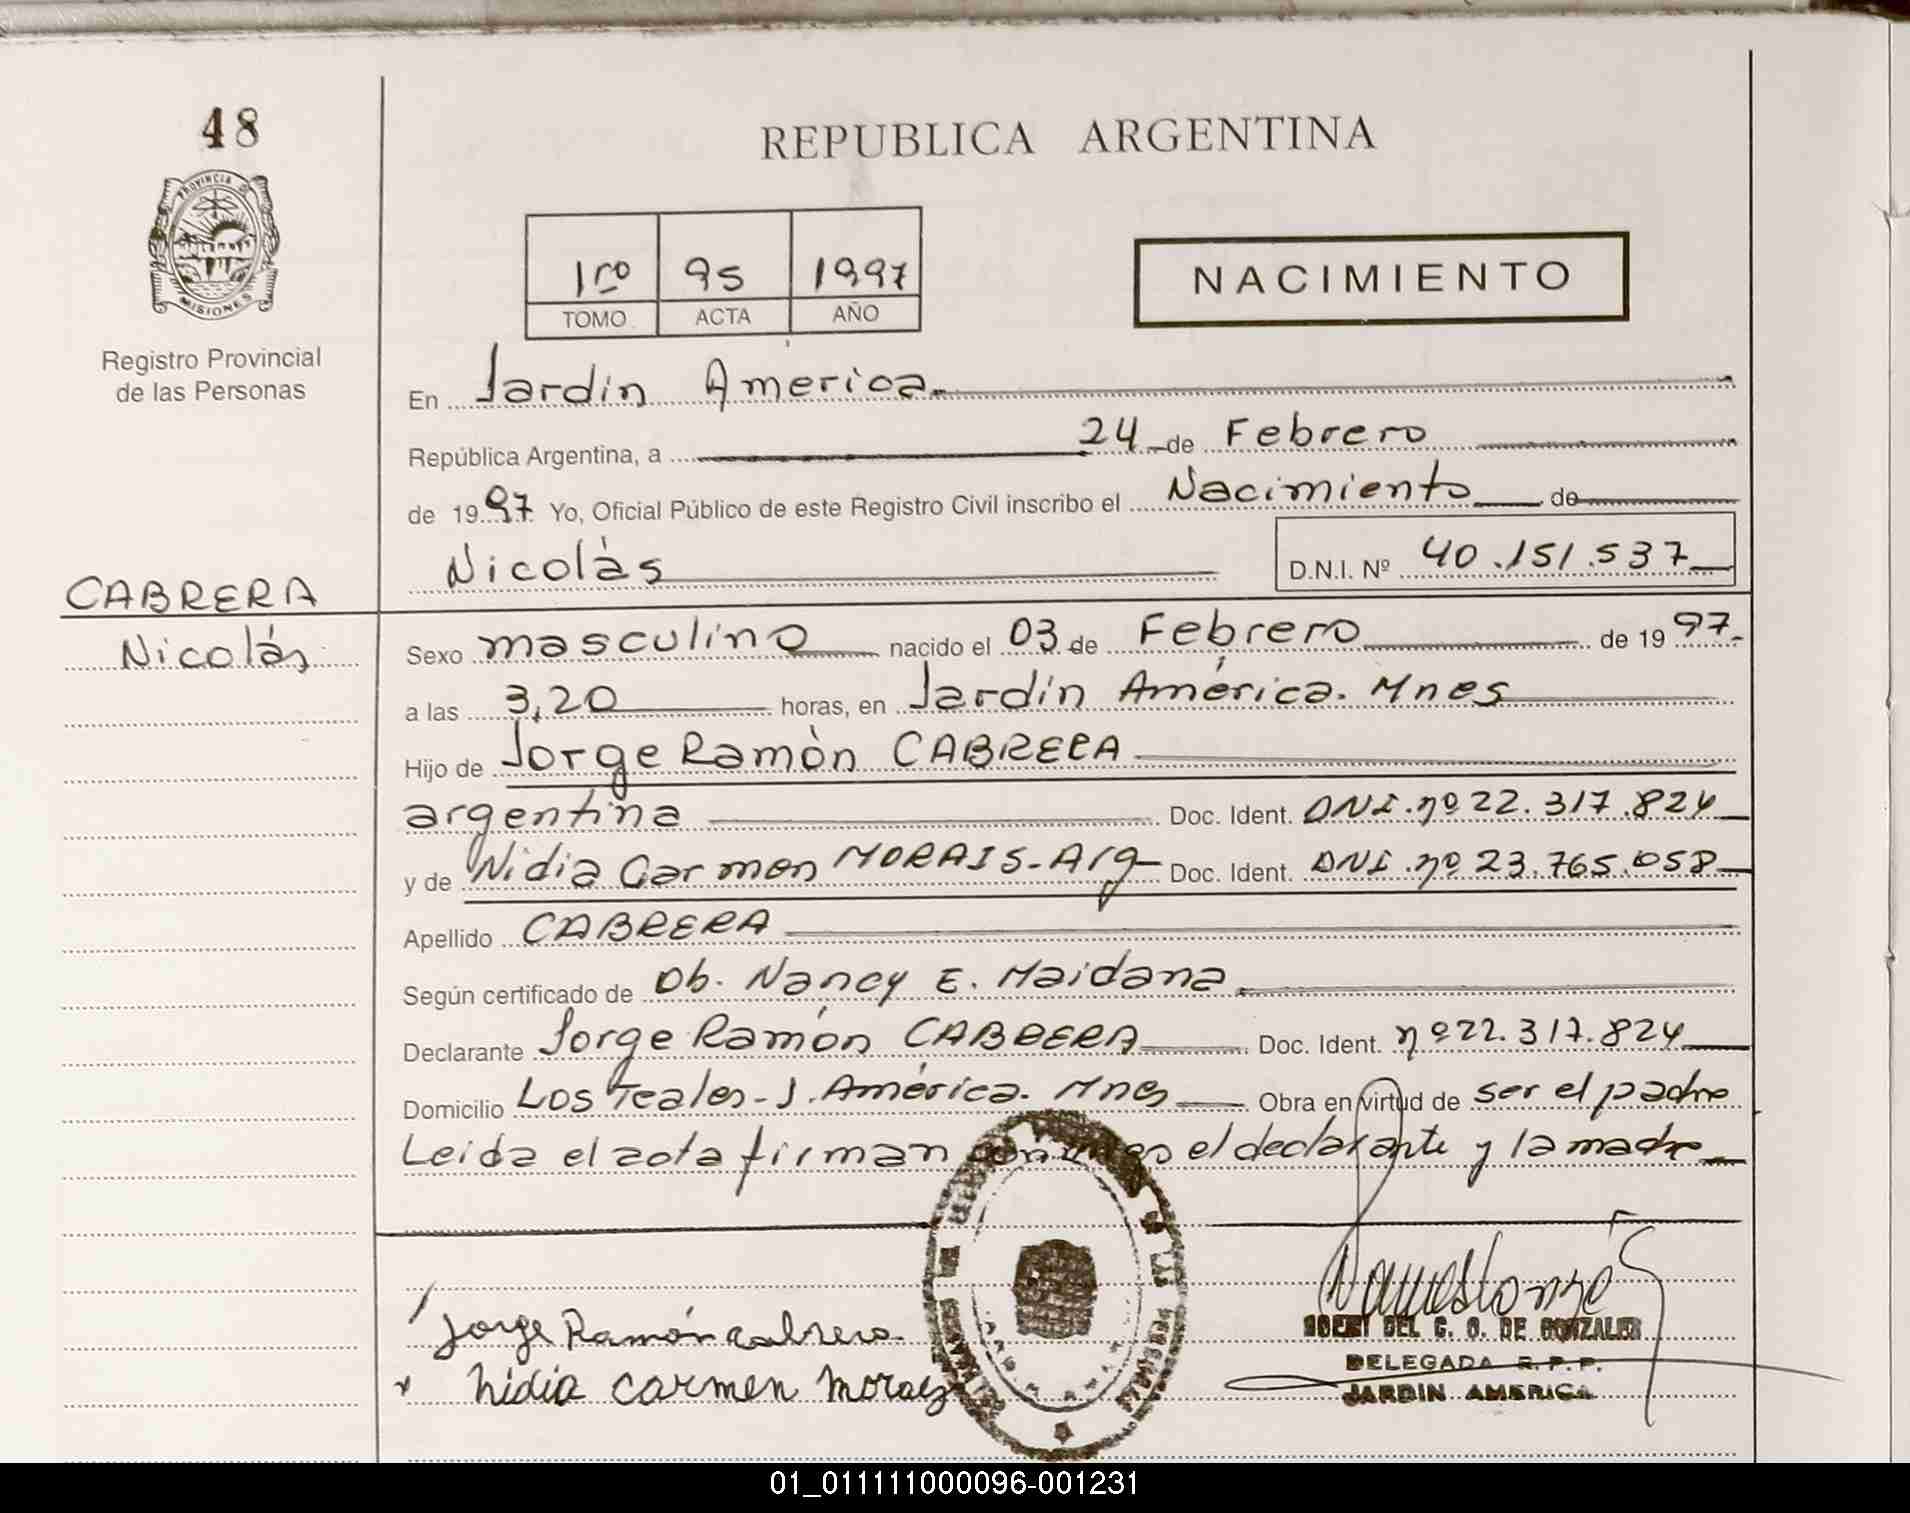 48
REPUBLICA ARGENTINA
PROVINCIA DE
MISIONES
Registro Provincial
de las Personas
1ro 95 1997
TOMO ACTA AÑO
NACIMIENTO
En Jardin America.
República Argentina, a 24 de Febrero
de 1997 Yo, Oficial Público de este Registro Civil inscribo el Nacimiento de
Nicolás D.N.I. Nº 40.151.537
CABRERA
Nicolás
Sexo masculino nacido el 03 de Febrero de 1997.
a las 3,20 horas, en Jardín América. Mnes
Hijo de Jorge Ramón CABRERA
argentina Doc. Ident. DNI.nº 22.317.824
y de Nidia Carmen MORAIS-Arg Doc. Ident. DNI.nº 23.765.058
Apellido CABRERA
Según certificado de Ob. Nancy E. Maidana
Declarante Jorge Ramón CABRERA Doc. Ident. nº 22.317.824
Domicilio Los Teales-J. América. Mnes Obra en virtud de ser el padre
Leida el acta firman el declarante y la madre
Jorge Ramón cabrera
Nidia Carmen Moraez
DEL C. O. DE GONZALEZ
DELEGADA R.P.P.
JARDIN AMERICA
01_011111000096-001231